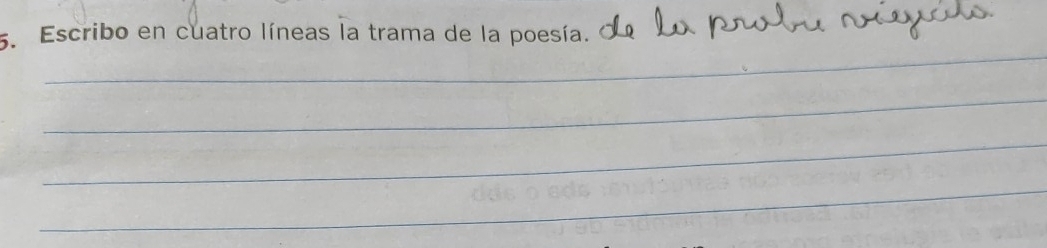 5. Escribo en cuatro líneas la trama de la poesía. de la probre viejecita